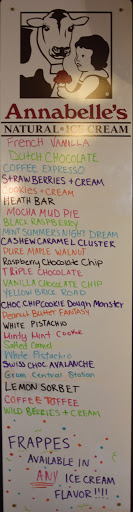 Annabelle's
NATURAL ICE CREAM
French VANILLA
Dutch CHOCOLATE
COFFEE EXPRESSO
STRAWBERRIES + CREAM
Cookies + CREAM
HEATH BAR
MOCHA MUD PIE
BLACK RASPBERRY
MINT SUMMERS NIGHT DREAM
CASHEW CARAMEL CLUSTER
PURE MAPLE WALNUT
Raspberry Chocolate Chip
TRIPLE CHOCOLATE
VANILLA CHOCOLATE CHIP
YELLOW BRICK ROAD
CHOC CHIP COOKIE Dough Monster
Peanut Butter FANTASY
WHITE PISTACHIO
Minty Mint Cookie
Salted Caramel
White Pistachio
SWISS CHOC AVALANCHE
Gram Central Station
LEMON SORBET
COFFEE TOFFEE
WILD BERRIES + CREAM
FRAPPES
AVAILABLE IN
ANY ICE CREAM
FLAVOR!!!!